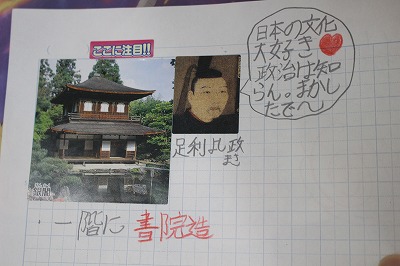 ここに注目!!
日本の文化
大好き
政治は知
らん。まかし
たでへ
足利よし政
まさ
銀閣
・一階に 書院造